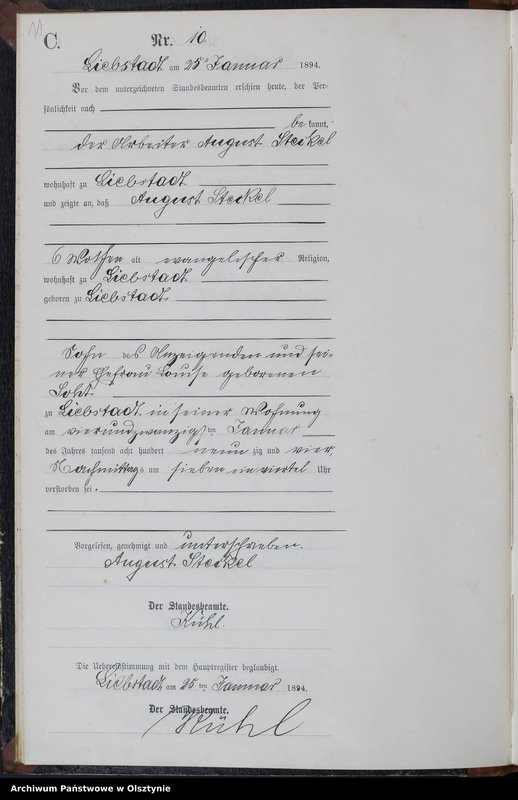 C. Nr. 10.
Liebstadt am 25ten Januar 1894.
Vor dem unterzeichneten Standesbeamten erschien heute, der Per-
sönlichkeit nach
be kannt,
der Arbeiter August Steckel
wohnhaft zu Liebstadt
und zeigte an, daß August Steckel
6 Wochen alt evangelischer Religion,
wohnhaft zu Liebstadt
geboren zu Liebstadt
Sohn des Anzeigenden und sei-
ner Ehefrau Louise geborenen
zu Liebstadt in seiner Wohnung
am vierundzwanzigsten Januar
des Jahres tausend acht hundert neun zig und vier,
Nachmittags um sieben ein viertel Uhr
verstorben sei.
Vorgelesen, genehmigt und unterschrieben.
August Steckel
Der Standesbeamte.
Kühl.
Die Uebereinstimmung mit dem Hauptregister beglaubigt.
Liebstadt am 25 ten Januar 1894.
Der Standesbeamte.
Kühl
Archiwum Państwowe w Olsztynie